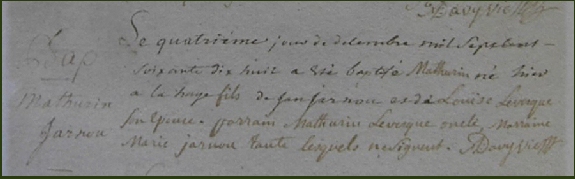 Davy vic
Le quatriéme jour de decembre mil Sept cent
Bap soixante dix huit a été baptisé Mathurin né hier
Mathurin a la haye fils de jan jarnou et de Louise Levesque
Jarnou Son Epouse. parrain Mathurin Levesque oncle, Marraine
Marie jarnou tante lesquels ne signent. Davy vic